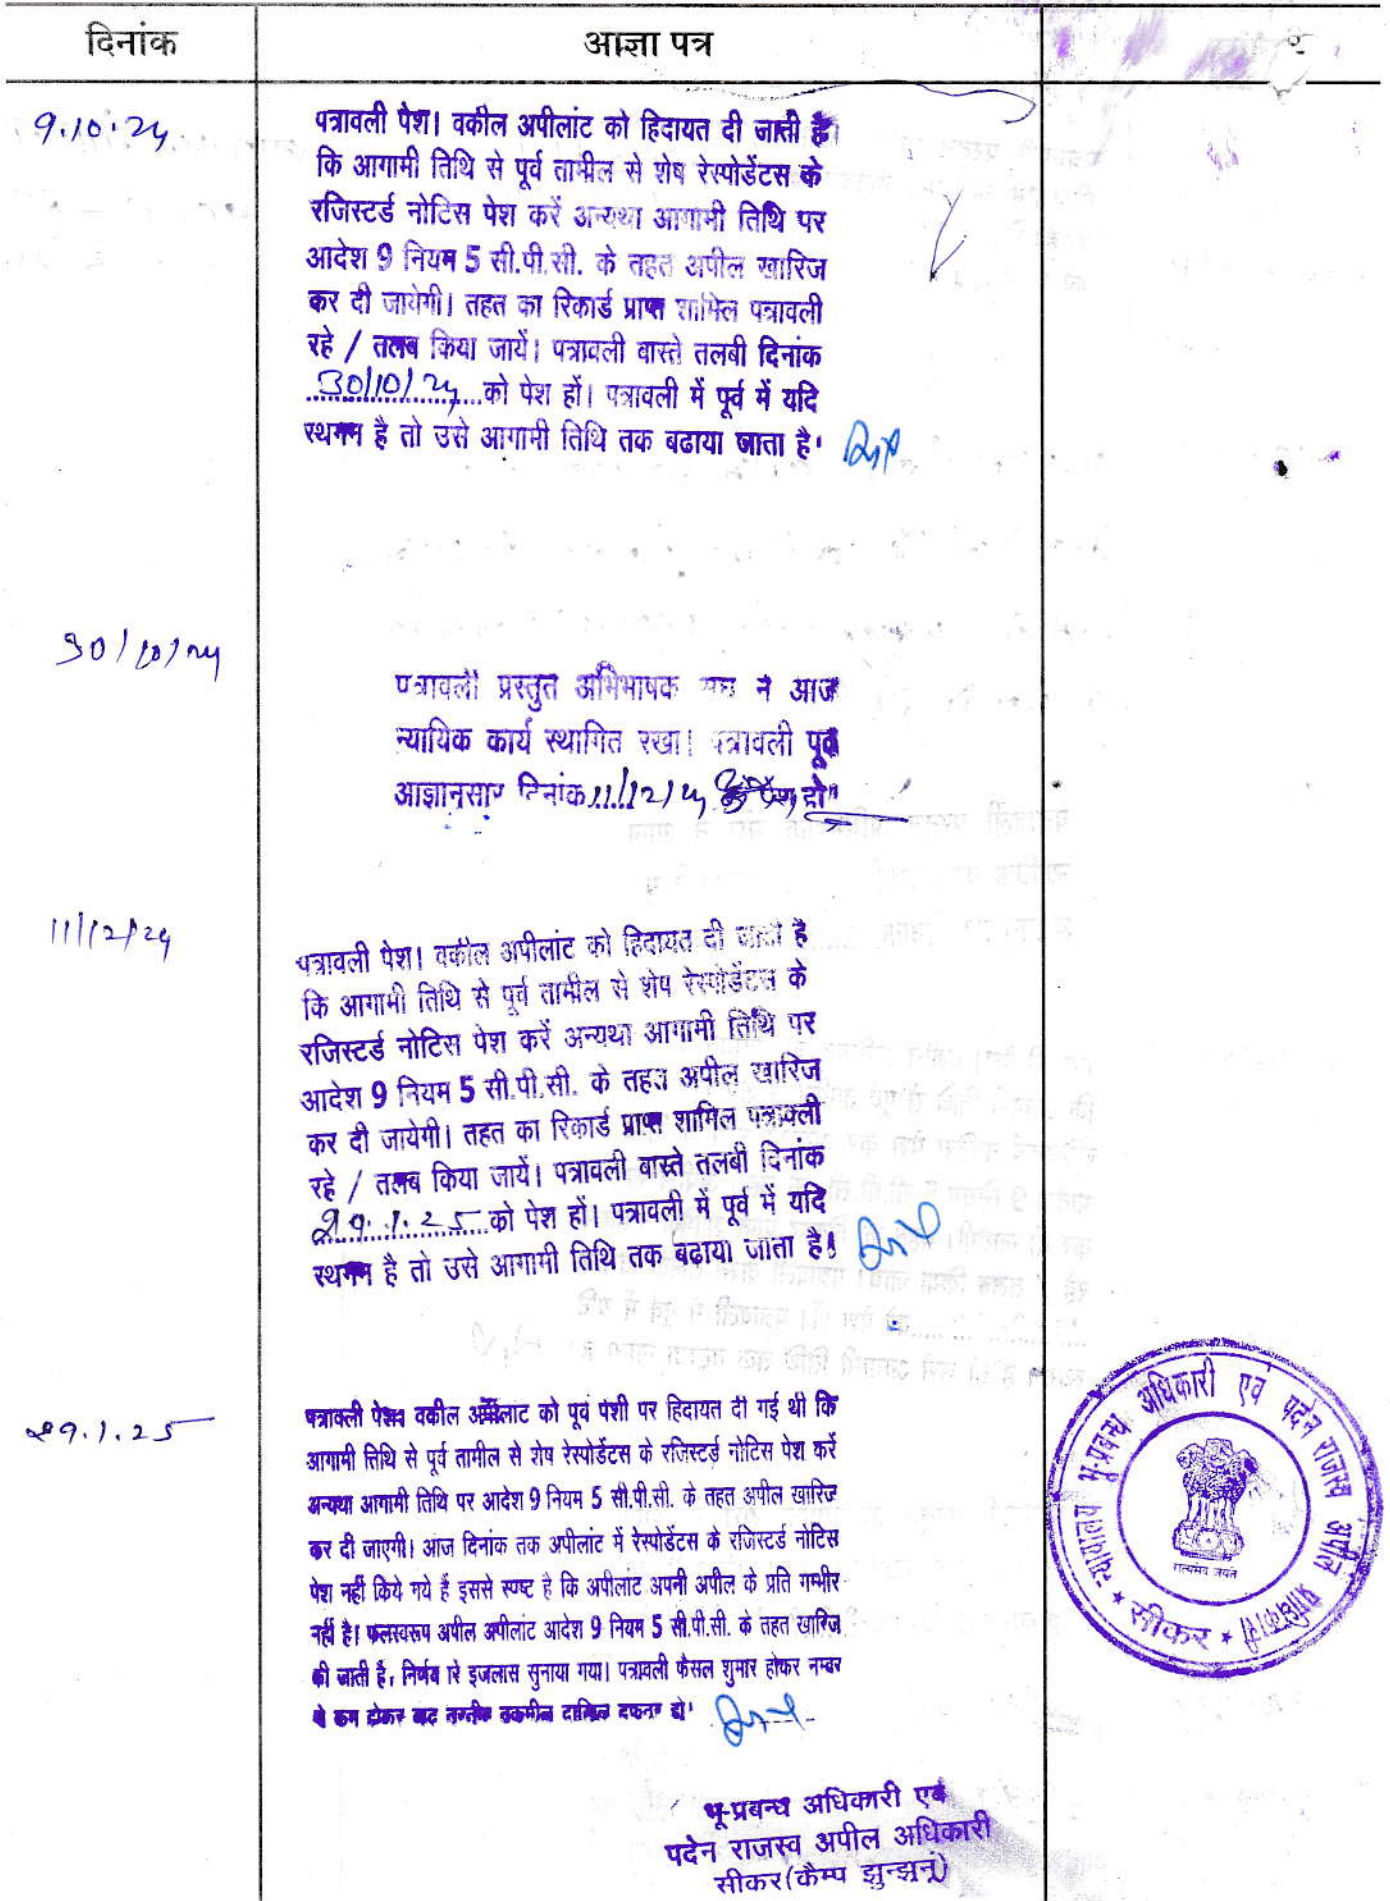 दिनांक
आज्ञा पत्र
9.10.24
पत्रावली पेश। वकील अपीलांट को हिदायत दी जाती है।
कि आगामी तिथि से पूर्व तामील से शेष रेस्पोडेंटस के
रजिस्टर्ड नोटिस पेश करें अन्यथा आगामी तिथि पर
आदेश 9 नियम 5 सी.पी.सी. के तहत अपील खारिज
कर दी जायेगी। तहत का रिकार्ड प्राप्त शामिल पत्रावली
रहे / तलब किया जायें। पत्रावली वास्ते तलबी दिनांक
30/10/24 को पेश हों। पत्रावली में पूर्व में यदि
स्थगन है तो उसे आगामी तिथि तक बढाया जाता है।
30/10/24
पत्रावली प्रस्तुत अभिभाषक संघ ने आज
न्यायिक कार्य स्थागित रखा। पत्रावली पूर्व
आज्ञानुसार दिनांक 11/12/24 को पेश हो
11/12/24
पत्रावली पेश। वकील अपीलांट को हिदायत दी जाती है
कि आगामी तिथि से पूर्व तामील से शेष रेस्पोडेंटस के
रजिस्टर्ड नोटिस पेश करें अन्यथा आगामी तिथि पर
आदेश 9 नियम 5 सी.पी.सी. के तहत अपील खारिज
कर दी जायेगी। तहत का रिकार्ड प्राप्त शामिल पत्रावली
रहे / तलब किया जायें। पत्रावली वास्ते तलबी दिनांक
29.1.25 को पेश हों। पत्रावली में पूर्व में यदि
स्थगन है तो उसे आगामी तिथि तक बढाया जाता है।
29.1.25
पत्रावली पेश। वकील अपीलांट को पूर्व पेशी पर हिदायत दी गई थी कि
आगामी तिथि से पूर्व तामील से शेष रेस्पोर्डेटस के रजिस्टर्ड नोटिस पेश करें
अन्यथा आगामी तिथि पर आदेश 9 नियम 5 सी.पी.सी. के तहत अपील खारिज
कर दी जाएगी। आज दिनांक तक अपीलांट में रेस्पोडेंटस के रजिस्टर्ड नोटिस
पेश नहीं किये गये हैं इससे स्पष्ट है कि अपीलांट अपनी अपील के प्रति गम्भीर
नहीं है। फलस्वरूप अपील अपीलांट आदेश 9 नियम 5 सी.पी.सी. के तहत खारिज
की जाती है, निर्णय इजलास सुनाया गया। पत्रावली फैसल शुमार होकर नम्बर
से कम होकर बाद तकमील दाखिल दफ्तर हो।
भू-प्रबन्ध अधिकारी एवं
पदेन राजस्व अपील अधिकारी
सीकर(कैम्प झुन्झुनूं)
न्यायालय भू-प्रबन्ध अधिकारी एवं पदेन राजस्व अपील प्राधिकारी
सत्यमेव जयते
★ सीकर ★